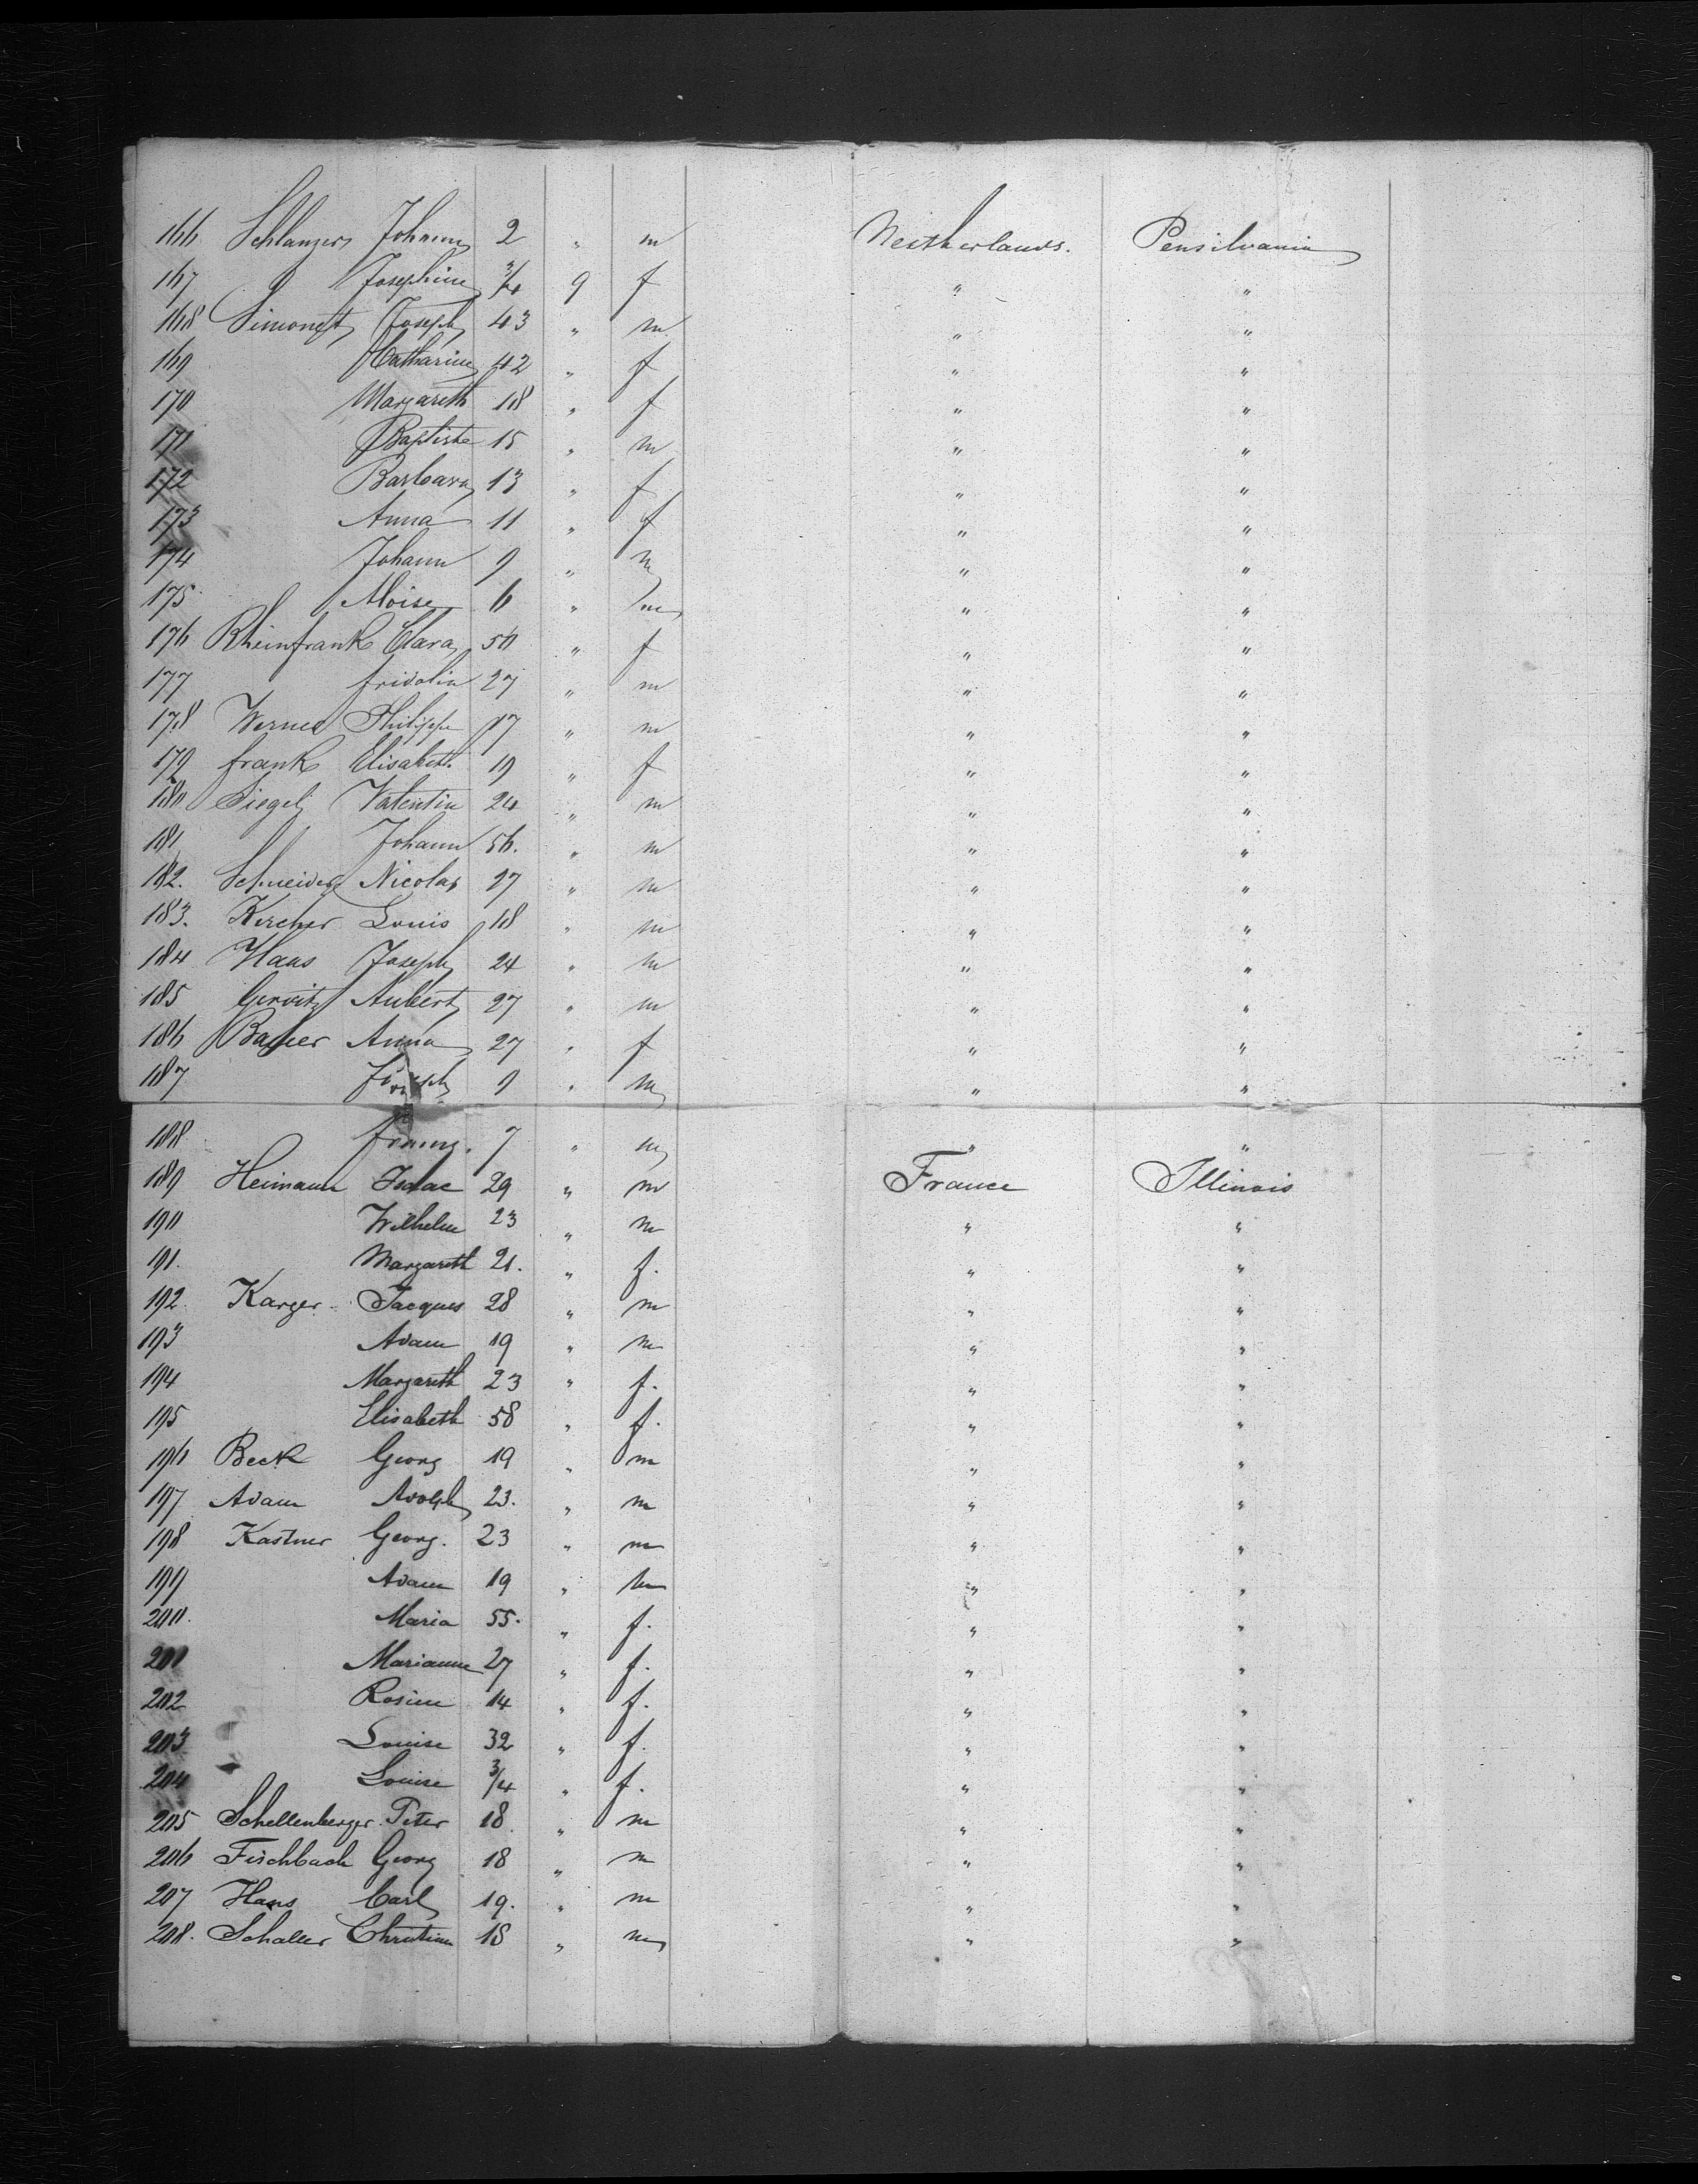 166 Schlanger Johann 2 " m Neitherlands. Pensilvania
167 Josephine 3/4 9 f " "
168 Simonet Joseph 43 " m " "
169 Catharine 42 " f " "
170 Margareth 18 " f " "
171 Baptiste 15 " m " "
172 Barbara 13 " f " "
173 Anna 11 " f " "
174 Johann 9 " m " "
175 Aloise 6 " m " "
176 Rheinfrank Clara 50 " f " "
177 fridolin 27 " m " "
178 Werner Philippe 17 " m " "
179 frank Elisabeth 19 " f " "
180 Siegel Valentin 24 " m " "
181 Johann 56. " m " "
182. Schneider Nicolas 27 " m " "
183. Kircher Louis 18 " m " "
184 Haas Joseph 24 " m " "
185 Aubert 27 " m " "
186 Bauer Anna 27 " f " "
187 Joseph 9 " m " "
188 franz. 7 " m " "
189 Heimann Isaac 29 " m France Illinois
190 Wilhelm 23 " m " "
191. Margareth 21. " f. " "
192. Karger Jacques 28 " m " "
193 Adam 19 " m " "
194 Margareth 23 " f. " "
195 Elisabeth 58 " f. " "
196 Beck Georg 19 " m " "
197 Adam Adolph 23. " m " "
198 Kastner Georg. 23 " m " "
199 Adam 19 " m " "
200. Maria 55. " f. " "
201 Marianne 27 " f. " "
202 Rosine 14 " f. " "
203 Louise 32 " f. " "
204 Louise 3/4 " f. " "
205 Schellenberger Peter 18. " m " "
206 Fischbach Georg 18 " m " "
207 Hans Carl 19. " m " "
208. Schaller Christian 18 " m " "